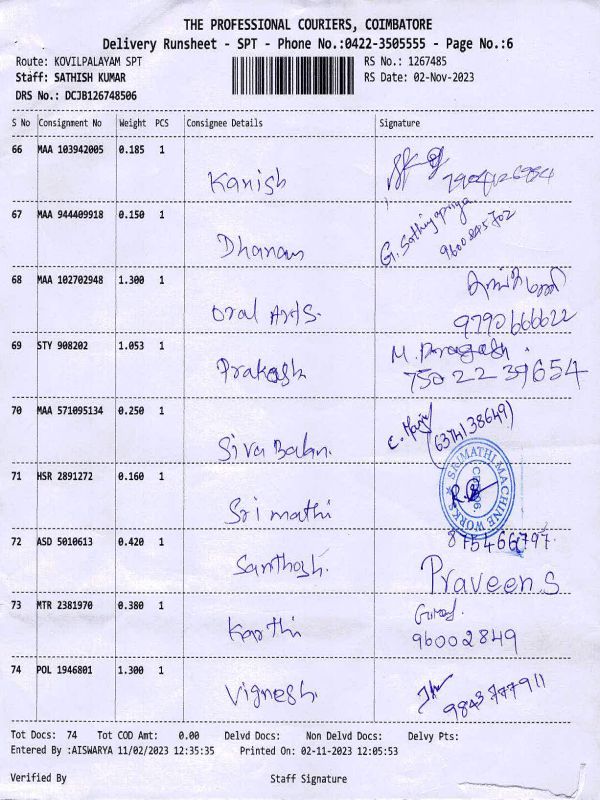 THE PROFESSIONAL COURIERS, COIMBATORE
Delivery Runsheet - SPT - Phone No.:0422-3505555 - Page No.:6
Route: KOVILPALAYAM SPT RS No.: 1267485
Staff: SATHISH KUMAR RS Date: 02-Nov-2023
DRS No.: DCJB126748506
S No Consignment No Weight PCS Consignee Details Signature
66 MAA 103942005 0.185 1
Kanish
67 MAA 944409918 0.150 1 G. Sathiyapriya
Dhanam 9600895702
68 MAA 102702948 1.300 1
Oral Arts. 9790666622
69 STY 908202 1.053 1 M.
Prakash 750 22 39654
70 MAA 571095134 0.250 1
Siva Balan. 6374138649)
71 HSR 2891272 0.160 1 SRI MATHI MACHINE WORKS
Sri mathi R.
72 ASD 5010613 0.420 1 8754667797
Santhosh. Praveen.S
73 MTR 2381970 0.380 1
Karthi 96002849
74 POL 1946801 1.300 1
Vignesh. 9843777911
Tot Docs: 74 Tot COD Amt: 0.00 Delvd Docs: Non Delvd Docs: Delvy Pts:
Entered By :AISWARYA 11/02/2023 12:35:35 Printed On: 02-11-2023 12:05:53
Verified By Staff Signature